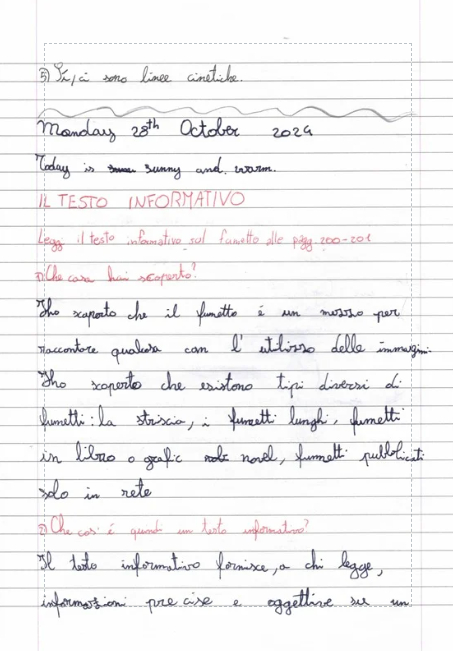 5) Sì, ci sono linee cinetiche.
Monday 28th October 2024
Today is sunny and warm.
IL TESTO INFORMATIVO
Leggi il testo informativo sul fumetto alle pagg. 200-201
1) Che cosa hai scoperto?
Ho scoperto che il fumetto è un mezzo per
raccontare qualcosa con l'utilizzo delle immagini.
Ho scoperto che esistono tipi diversi di
fumetti: la striscia, i fumetti lunghi, fumetti
in libro o grafic novel, fumetti pubblicati
solo in rete
2) Che cos'é quindi un testo informativo?
Il testo informativo fornisce, a chi legge,
informazioni precise e oggettive su un